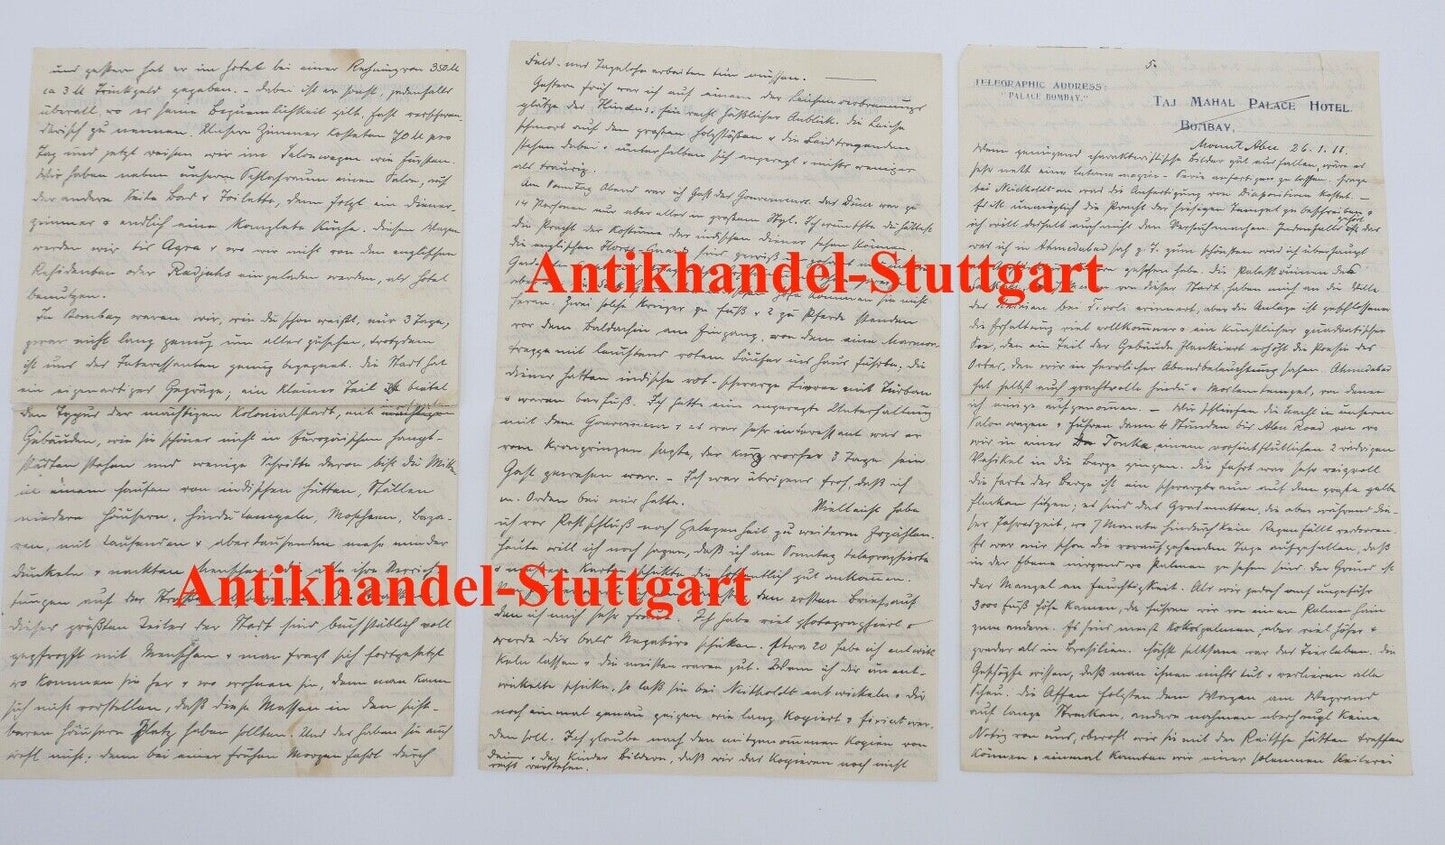 und gestern hat er im Hotel bei einer Rechnung von 350 M
ca 3 M Trinkgeld gegeben. – Dabei ist er sonst, jedenfalls
überall, wo es seine Bequemlichkeit gilt, fast verschwen-
derisch zu nennen. Unsere Zimmer kosteten 70 M pro
Tag und jetzt reisen wir im Salonwagen wie Fürsten.
Wir haben neben unserem Schlafraum einen Salon, auf
der anderen Seite Bad & Toilette, dann folgt ein Diener-
zimmer & endlich eine komplete Küche. Diesen Wagen
werden wir bis Agra & wo wir nicht von den englischen
Residenten oder Radjahs eingeladen werden, als Hotel
benutzen.
In Bombay waren wir, wie du schon weißt, nur 3 Tage,
zwar nicht lang genug um alles zu sehen, trotzdem
ist uns des Interessanten genug begegnet. Die Stadt hat
ein eigenartiges Gepräge, ein kleiner Teil bietet
den Typus der mächtigen Kolonialstadt, mit
Gebäuden, wie sie schöner nicht in Europäischen Haupt-
städten stehen und wenige Schritte davon bist du mitten
in einem Haufen von indischen Hütten, Ställen
niedern Häusern, Hindutempeln, Moscheen, Baza-
ren, mit tausenden & abertausenden mehr minder
dunkeln & nackten Menschen, die alle ihre Verrich-
tungen auf der Straße
dieses größten Teiles der Stadt sind buchstäblich voll
gepfropft mit Menschen & man fragt sich fortgesetzt
wo kommen sie her & wo wohnen sie, denn man kann
sich nicht vorstellen, daß diese Massen in den sicht-
baren Häusern Platz haben sollten. Und das haben sie auch
wohl nicht, denn bei einer frühen Morgenfahrt durch
Feld- und Tagelohn arbeiten tun müssen. ———
Gestern früh war ich auf einem der Leichenverbrennungs
plätze der Hindus. Ein recht häßlicher Anblick. Die Leiche
schmort auf dem großen Holzstoßen & die Leidtragenden
stehen dabei & unterhalten sich angeregt & nichts weniger
als traurig.
Am Sonntag Abend war ich Gast des Gouverneurs. Das Diner war zu
14 Personen nur aber alles in großem Styl. Ich wünschte du hättest
die Pracht der Kostüme der indischen Diener sehen können.
die englischen Horse-Guards sind gewiß
Garde
aber
Herren. Zwei solche Krieger zu Fuß & 2 zu Pferde standen
vor dem Baldachin am Eingang, von dem eine Marmor-
treppe mit leuchtend rotem Läufer ins Haus führte, die
Diener hatten indische rot-schwarze Livree mit Turban
& waren barfuß. Ich hatte eine angeregte Unterhaltung
mit dem Gouverneur & es war sehr interessant was er
vom Kronprinzen sagte, der kurz vorher 3 Tage sein
Gast gewesen war. – Ich war übrigens froh, daß ich
m. Orden bei mir hatte. Vielleicht habe
ich vor Postschluß noch Gelegenheit zu weiteren Erzählen.
Heute will ich noch sagen, daß ich am Sonntag telegraphierte
& Karten schickte die hoffentlich gut ankommen.
den ersten Brief, auf
den ich mich sehr freue. Ich habe viel photographiert &
werde dir bald Negative schicken. Etwa 20 habe ich entwik
keln lassen & die meisten waren gut. Wenn ich dir unent-
wickelte schicke, so laß sie bei Nietholdt entwickeln & dir
noch einmal genau zeigen wie lang kopiert & fixiert wer-
den soll. Ich glaube nach den mitgenommenen Kopien von
deinen & der Kinder Bildern, daß wir das Kopieren noch nicht
recht verstehen.
5.
TELEGRAPHIC ADDRESS:
"PALACE BOMBAY."
TAJ MAHAL PALACE HOTEL.
BOMBAY,
Mount Abu 26.1.11.
Wenn genügend charakteristische Bilder gut ausfallen, wäre es
sehr nett eine Laterna magica-Serie anfertigen zu lassen. Frage
bei Nietholdt an was die Anfertigung von Diapositiven kostet. –
Es ist unmöglich die Pracht der hiesigen Tempel zu beschreiben &
ich will deshalb auch nicht den Versuch machen. Jedenfalls ist das
was ich in Ahmedabad sah z. T. zum schönsten was ich überhaupt
gesehen habe. Die Palastruinen des
von dieser Stadt, haben mich an die Villa
des Hadrian bei Tivoli erinnert, aber die Anlage ist geschlossener
die Erhaltung viel vollkommener & ein künstlicher quadratischer
See, den ein Teil der Gebäude flankiert erhöht die Poesie des
Ortes, den wir in herrlicher Abendbeleuchtung sahen. Ahmedabad
hat selbst auch prachtvolle Hindu & Moslemtempel, von denen
ich einige aufgenommen. – Wir schliefen die Nacht in unserem
Salonwagen & fuhren dann 6 Stunden bis Abu Road von wo
wir in einer Tonka, einem vorsintflutlichen 2 rädrigen
Vehikel in die Berge gingen. Die Fahrt war sehr reizvoll
die Farbe der Berge ist ein schwarzbraun auf dem große gelbe
Flecken sitzen; es sind das Grasmatten, die aber während die-
ser Jahreszeit, wo 7 Monate hindurch kein Regen fällt verdorren.
Es war mir schon die vorausgehenden Tage aufgefallen, daß
in der Ebene nirgend wo Palmen zu sehen sind. Der Grund ist
der Mangel an Feuchtigkeit. Als wir jedoch auf ungefähr
3000 Fuß Höhe kamen, da fuhren wir von einem Palmenhain
zum andern. Es sind meist Kokospalmen, aber viel höher &
grader als in Brasilien. Höchst seltsam war das Tierleben. Die
Geschöpfe wissen, daß man ihnen nichts tut & verlieren alle
Scheu. Die Affen folgten dem Wagen am Wegrand
auf lange Strecken, andere nahmen überhaupt keine
Notiz von uns, obwohl wir sie mit der Peitsche hätten treffen
können & einmal kamen wir einer solemnen Reiterei
Antikhandel-Stuttgart
Antikhandel-Stuttgart